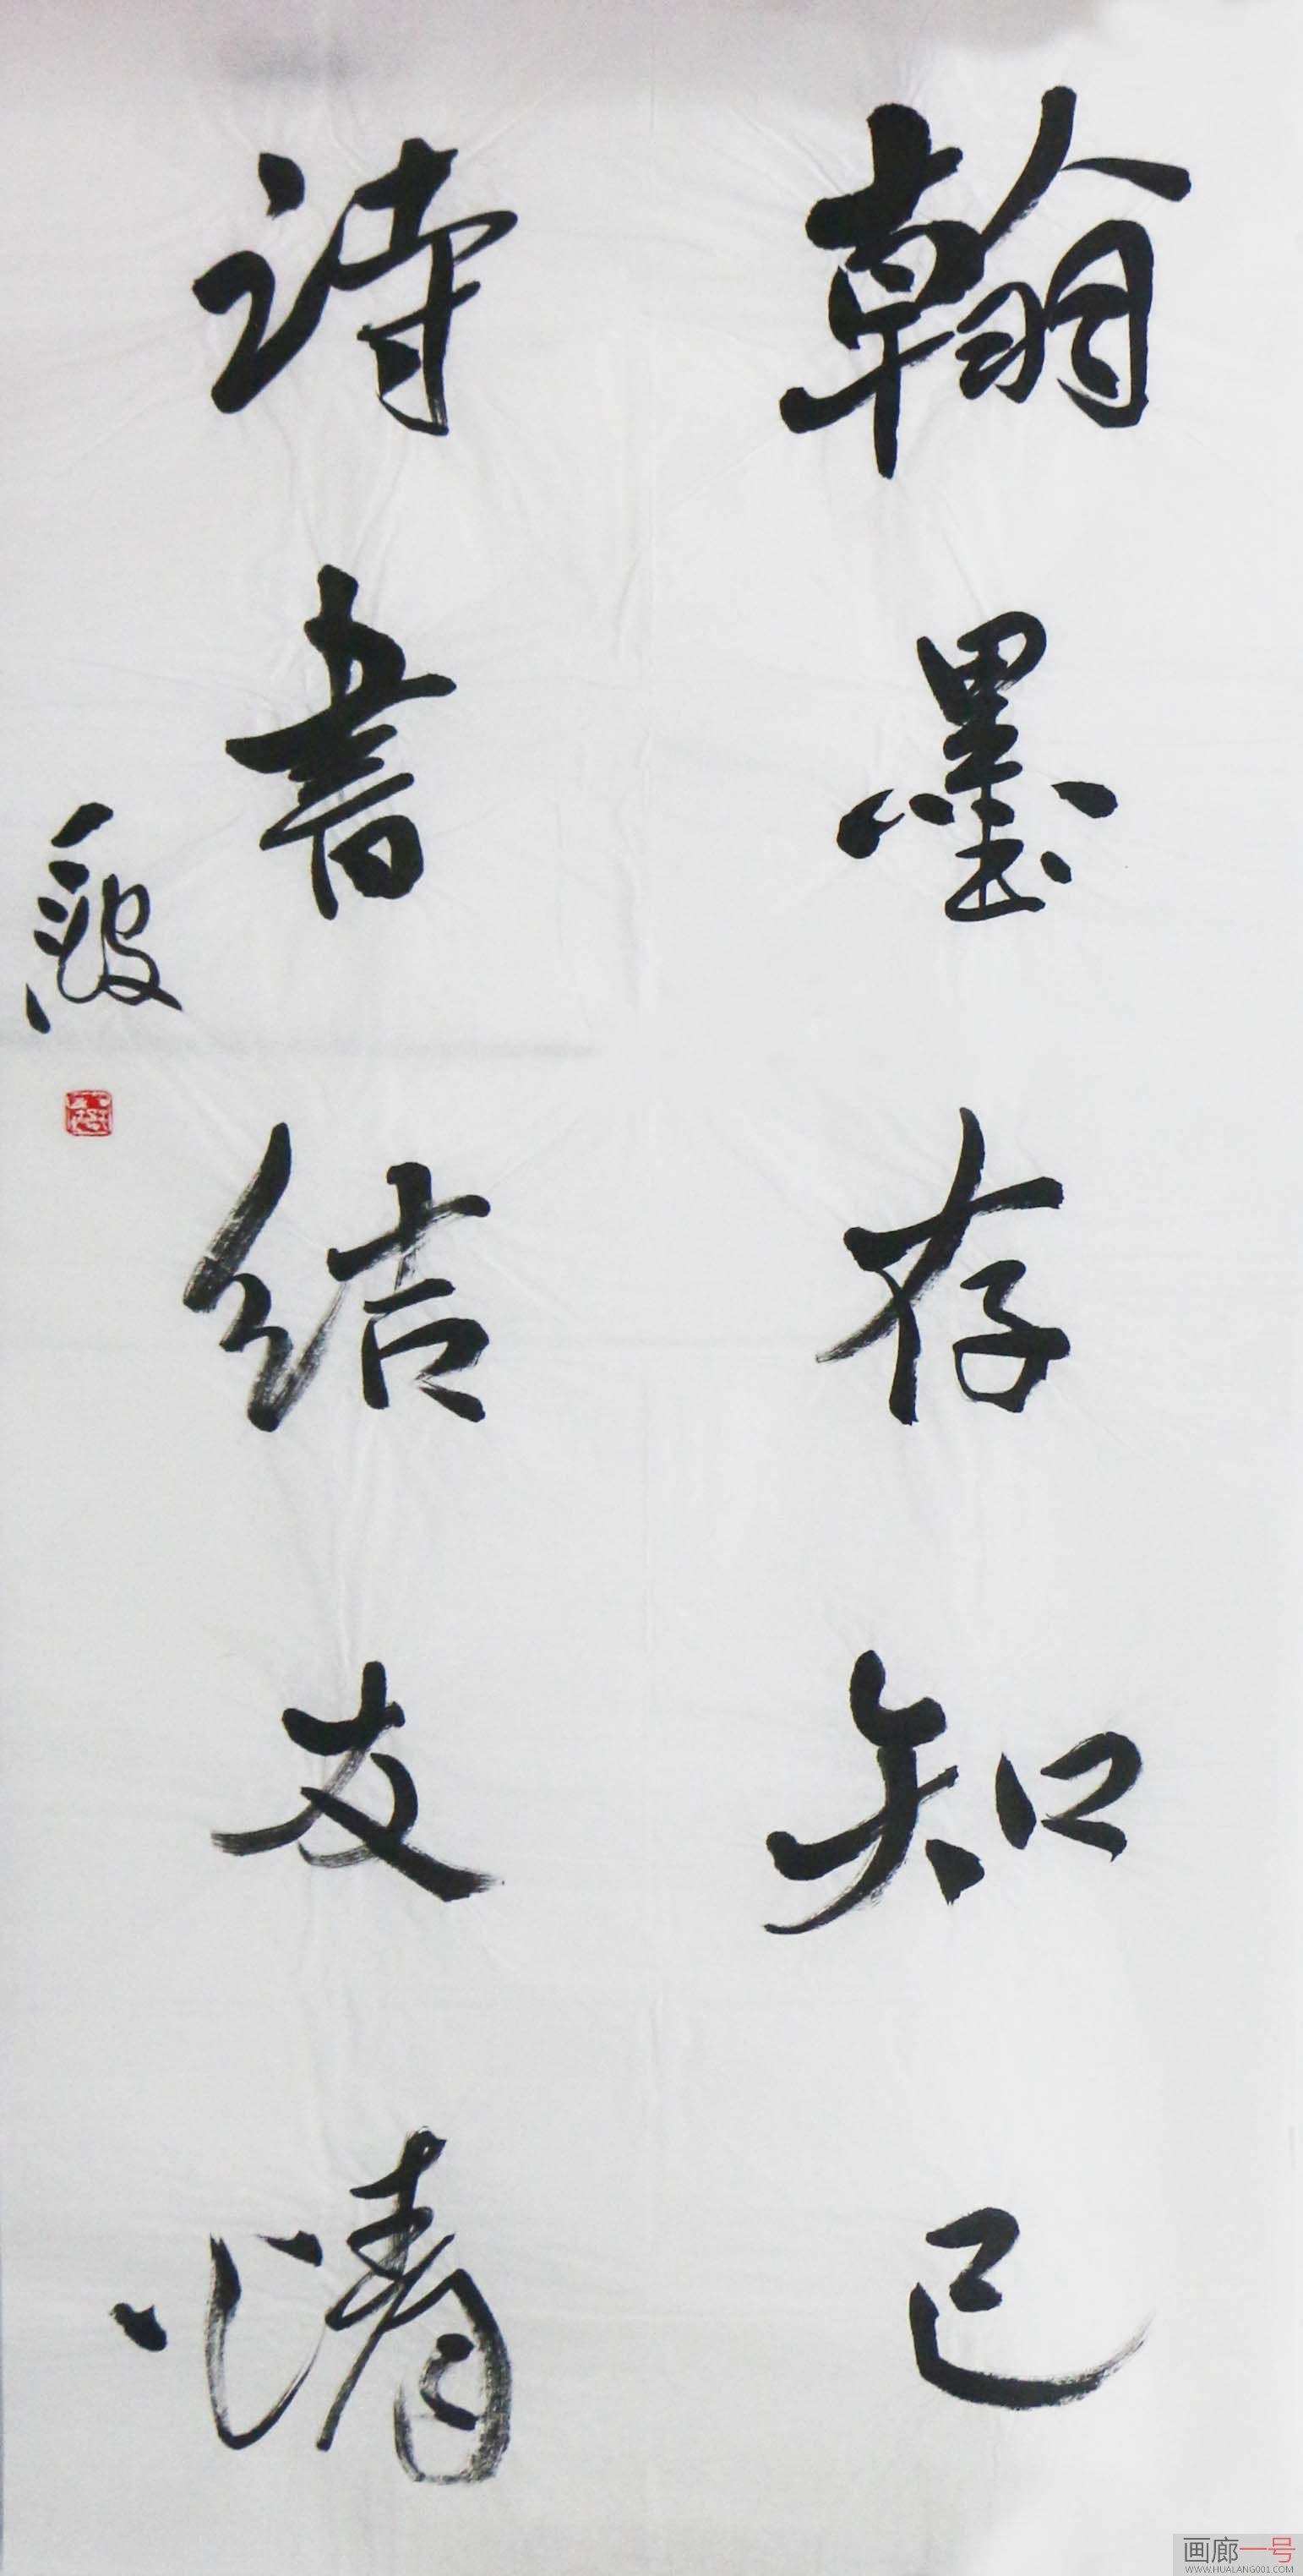 翰墨存知己
詩書结友情
画廊一号
WWW.HUALANG001.COM